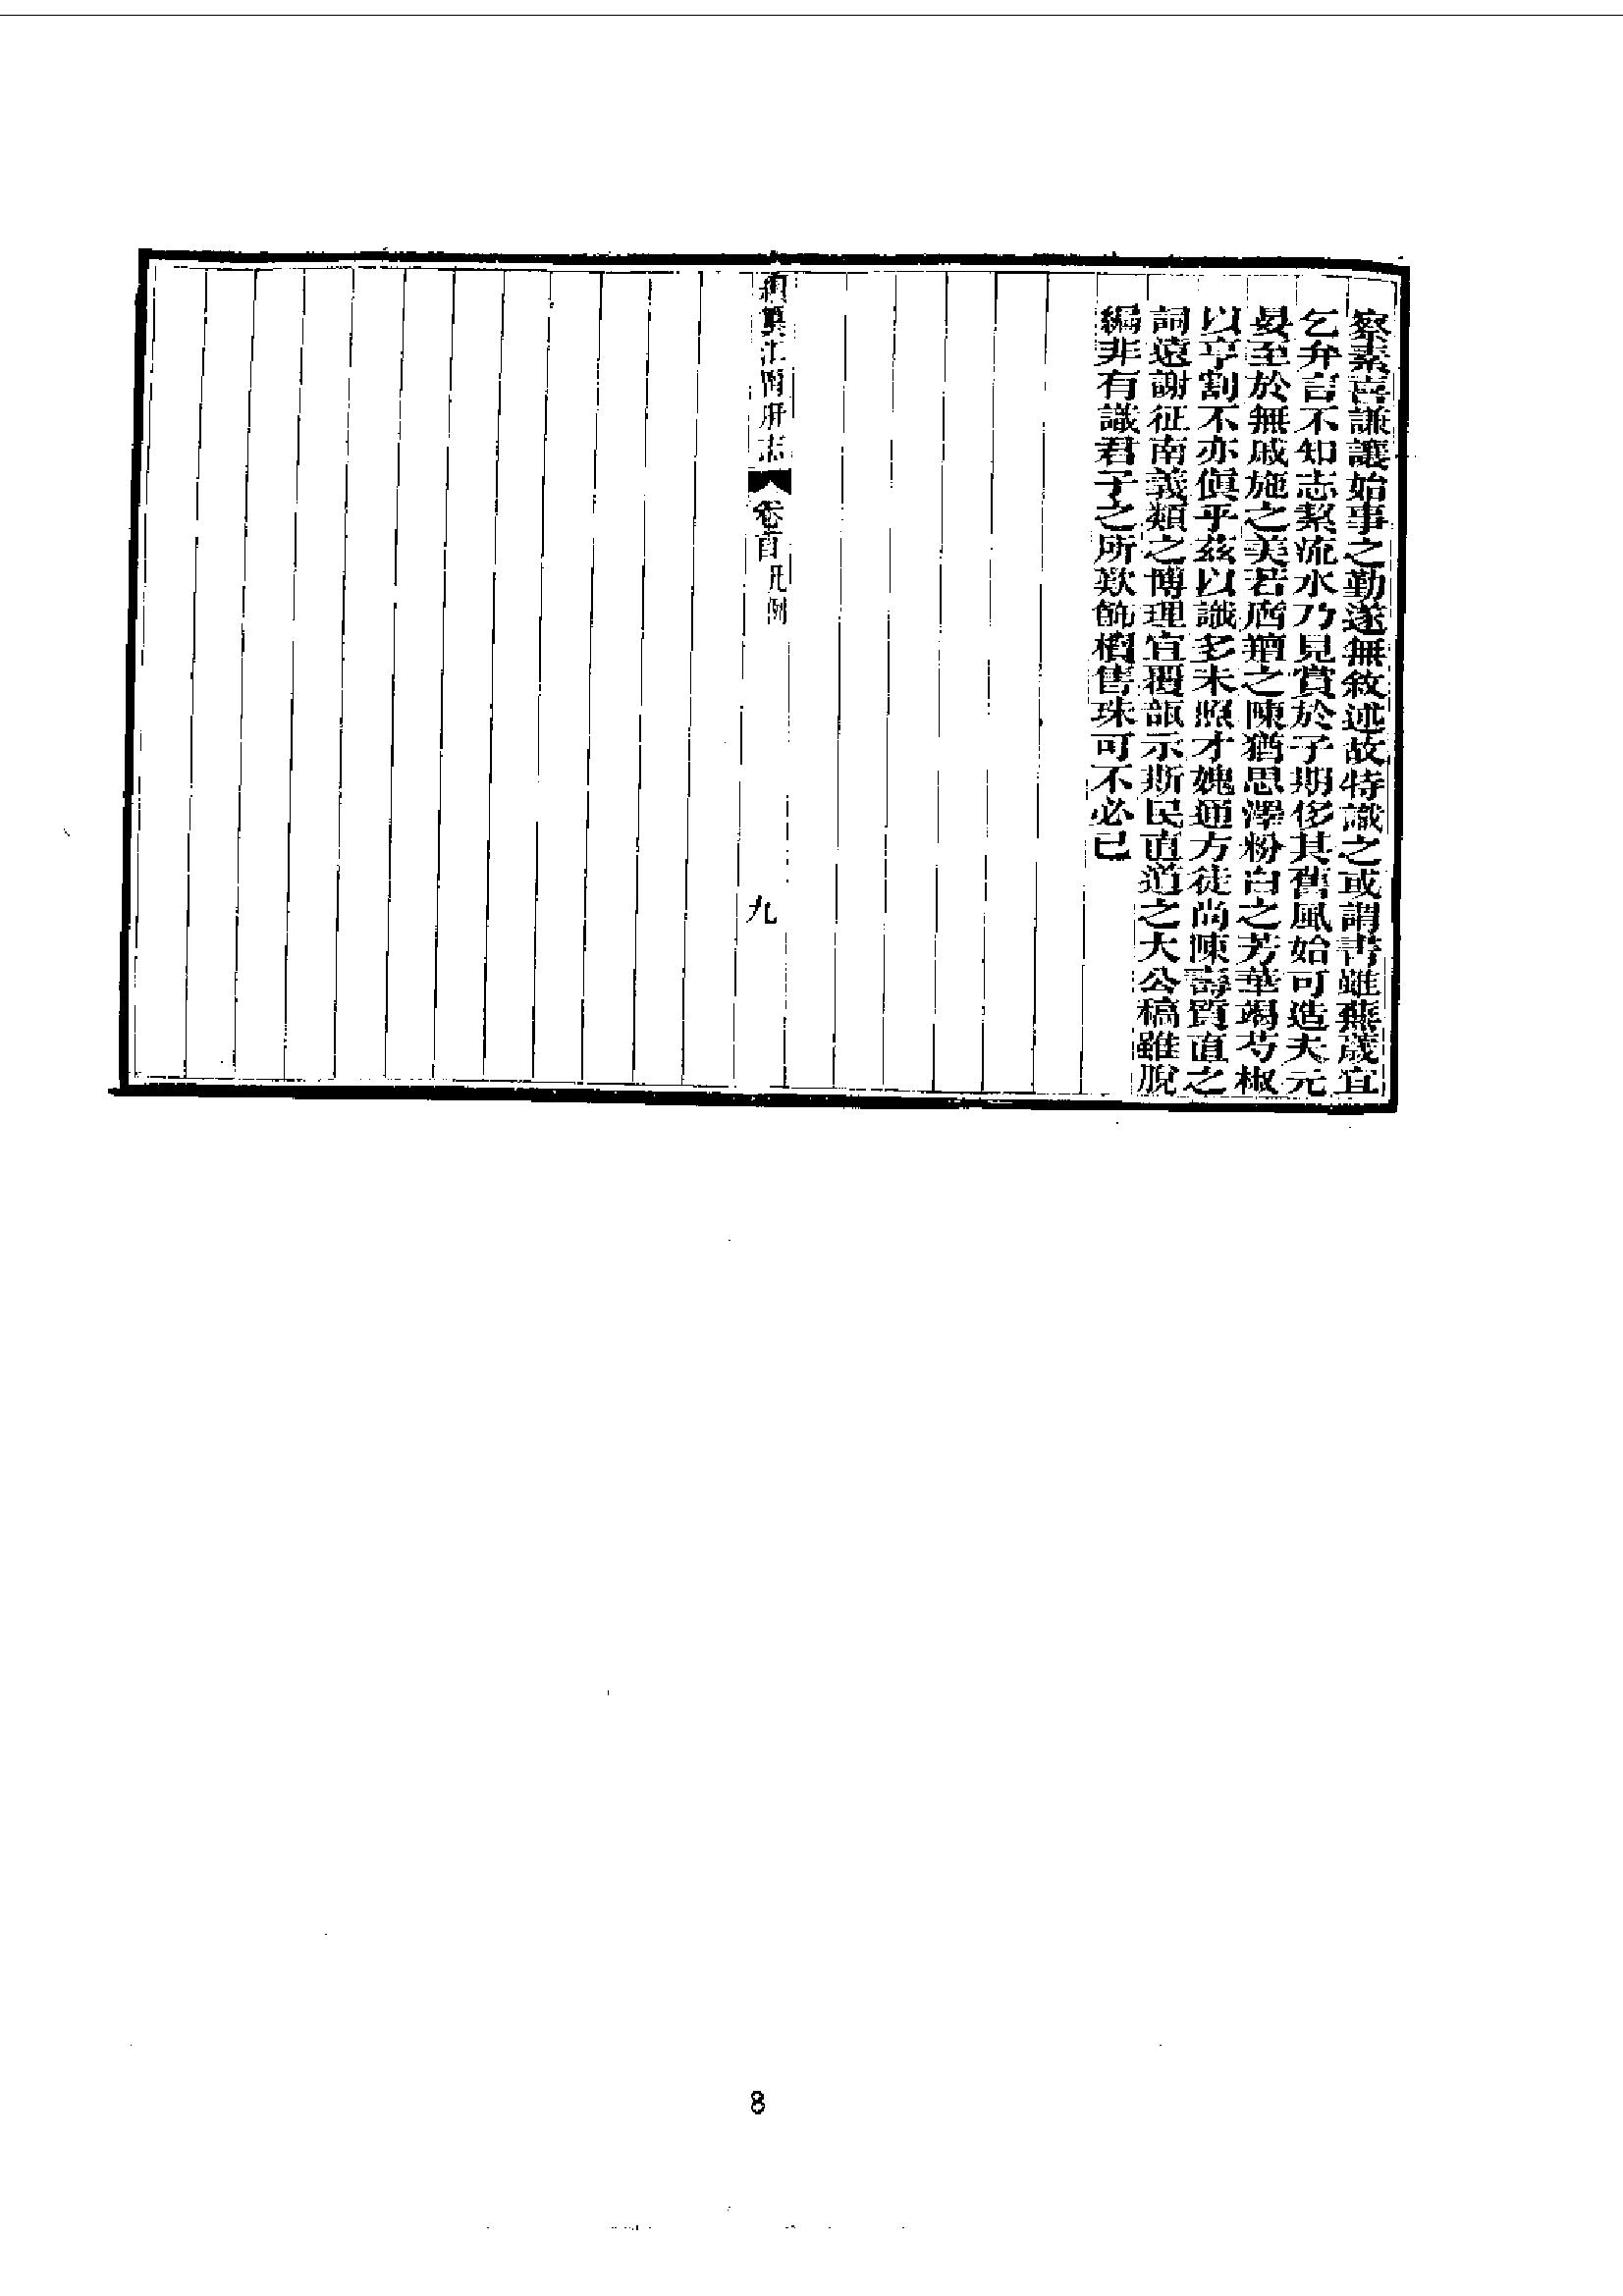 察素喜謙讓始事之勤遂無敘述故特識之或謂書雖蕪蕆宜
乞弁言不知志絜流水乃見賞於子期侈其舊風始可造夫元
晏至於無戚施之美若盾䵣之陳猶思澤粉白之芳華竭芍椒
以亨割不亦傎乎茲以識多未照才媿通方徒尚陳壽質直之
詞遠謝征南義類之博理宜覆瓿示斯民直道之大公稿雖脫
編非有識君子之所歎飾櫝售珠可不必已
續纂江寧府志
卷首凡例
九
8